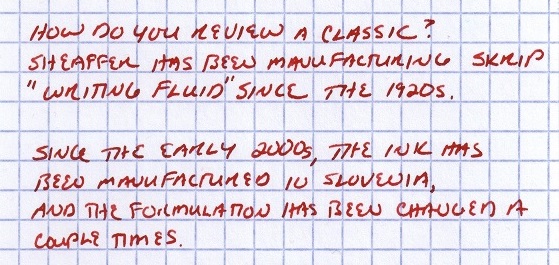 HOW DO YOU REVIEW A CLASSIC?
SHEAFFER HAS BEEN MANUFACTURING SKRIP
"WRITING FLUID" SINCE THE 1920S.
SINCE THE EARLY 2000S, THE INK HAS
BEEN MANUFACTURED IN SLOVENIA,
AND THE FORMULATION HAS BEEN CHANGED A
COUPLE TIMES.